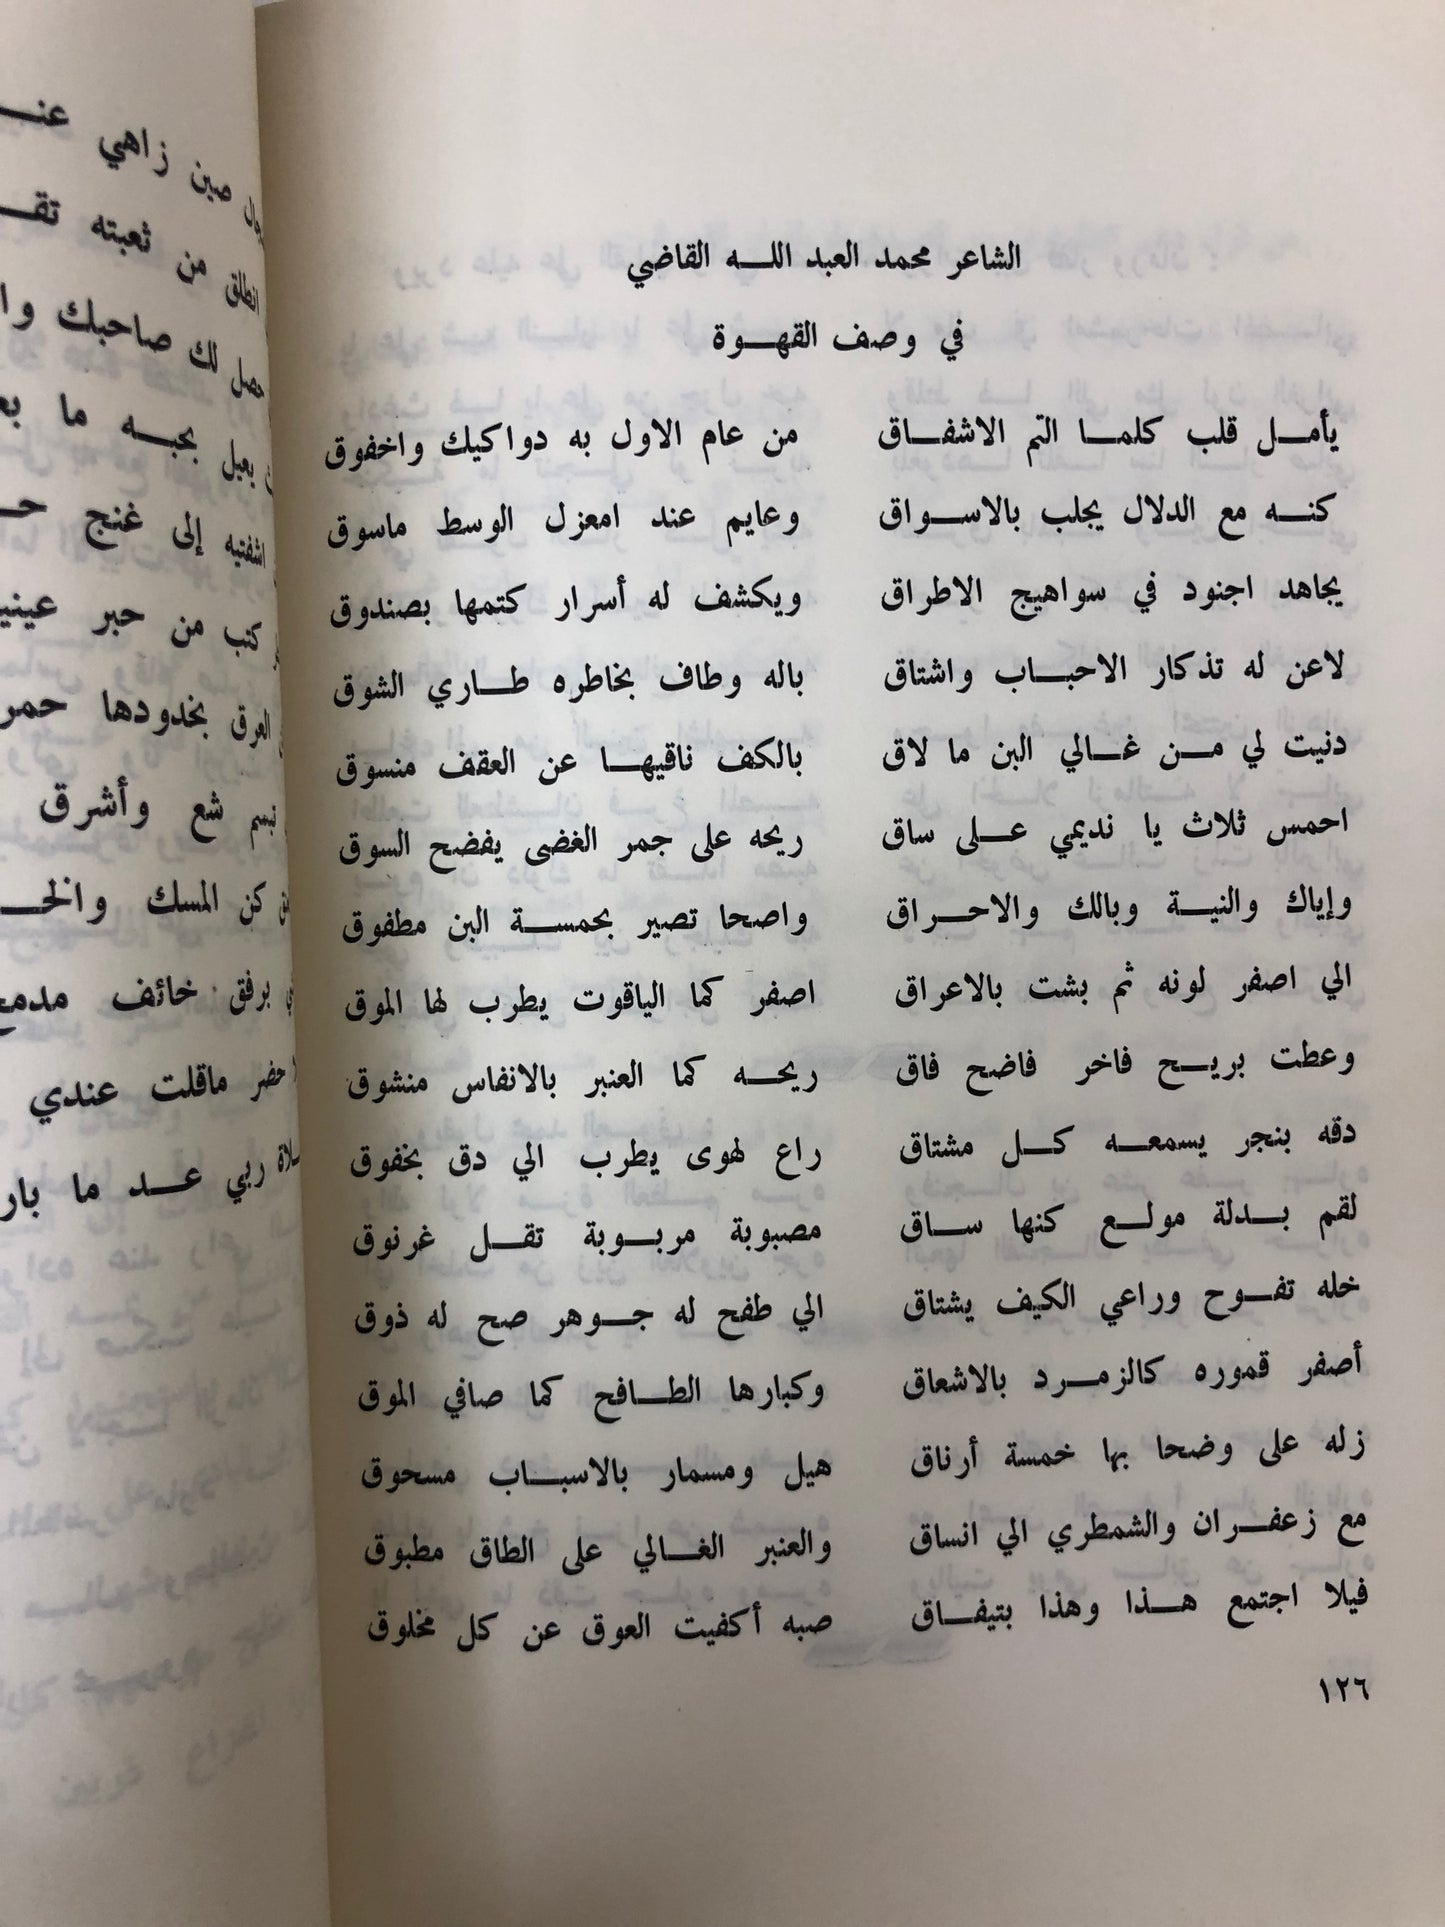 الشاعر محمد العبد الله القاضي
في وصف القهوة
يأمل قلب كلما التم الاشفاق من عام الاول به دواكيك واخفوق
كنه مع الدلال يجلب بالاسواق وعايم عند امعزل الوسط ماسوق
يجاهد اجنود في سواهيج الاطراق ويكشف له أسرار كتمها بصندوق
لاعن له تذكار الاحباب واشتاق باله وطاف بخاطره طاري الشوق
دنيت لي من غالي البن ما لاق بالكف ناقيها عن العقف منسوق
احمس ثلاث يا نديمي على ساق ريحه على جمر الغضى يفضح السوق
وإياك والنية وبالك والاحراق واصحا تصير بحمسة البن مطفوق
الي اصفر لونه ثم بشت بالاعراق اصفر كما الياقوت يطرب لها الموق
وعطت بريح فاخر فاضح فاق ريحه كما العنبر بالانفاس منشوق
دقه بنجر يسمعه كل مشتاق راع لهوى يطرب الي دق بخفوق
لقم بدلة مولع كنها ساق مصبوبة مربوبة تقل غرنوق
خله تفوح وراعي الكيف يشتاق الي طفح له جوهر صح له ذوق
أصفر قموره كالزمرد بالاشعاق وكبارها الطافح كما صافي الموق
زله على وضحا بها خمسة أرناق هيل ومسمار بالاسباب مسحوق
مع زعفران والشمطري الي انساق والعنبر الغالي على الطاق مطبوق
فيلا اجتمع هذا وهذا بتيفاق صبه أكفيت العوق عن كل مخلوق
١٢٦
صين زاهي
انطلق من ثعبته
حصل لك صاحبك
بعيل بحبه ما
اشفتيه إلى غنج
كتب من حبر
العرق بخدودها
تبسم شع وأشرق
كن المسك
برفق خائف
حضر ماقلت عندي
ربي عد ما